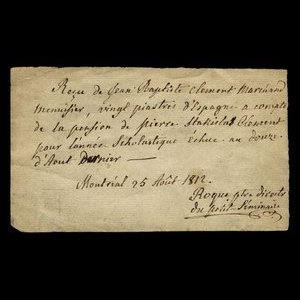 Reçu de Jean Baptiste Clement Marchand
Menuisier, vingt piastres d'Espagne a compte
de la pension de pierre Stanislas Clément
pour l'année Scholastique échue au douze
d'Aout Dernier —
Montréal 25 Août 1812.
Roque ptre
du petit Séminaire